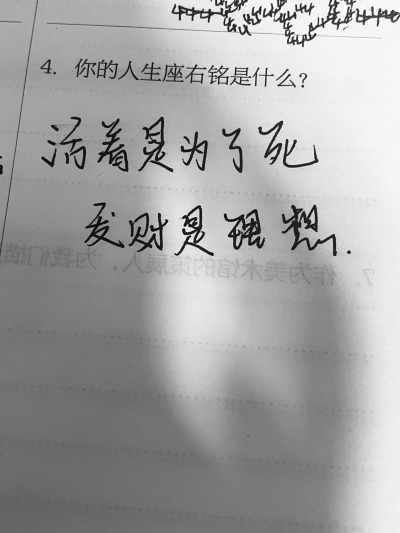 4. 你的人生座右铭是什么？
活着是为了死
发财是理想.
7. 作为美术馆的策展人，为我们描